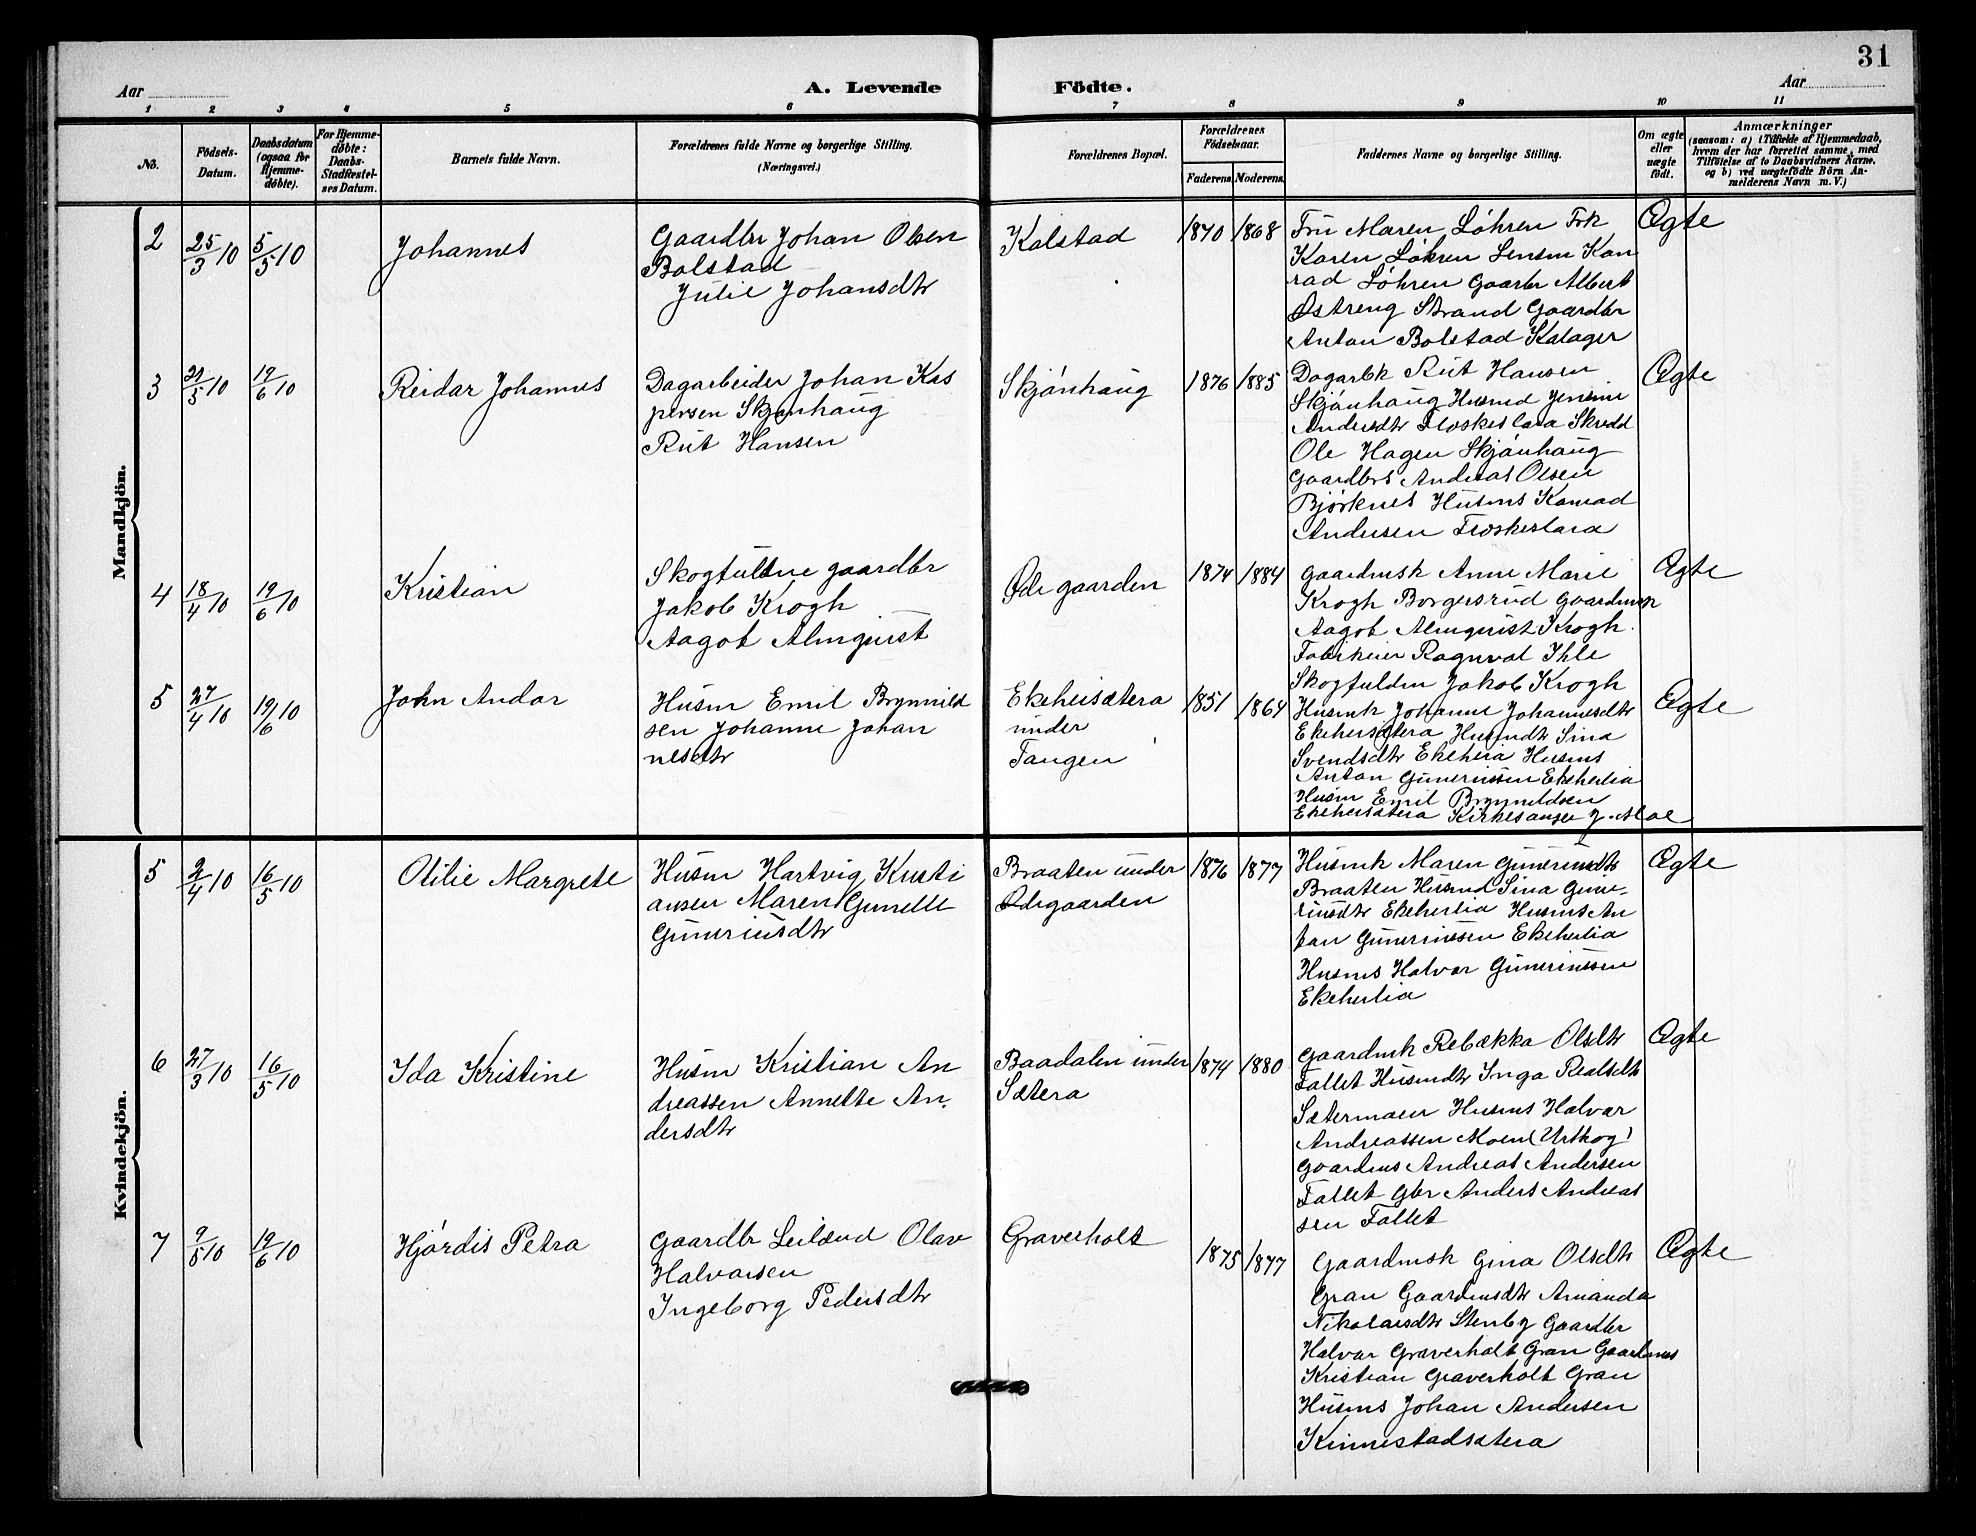 31
Aar
A. Levende Födte.
Aar
1 2 3 4 5 6 7 8 9 10 11
No.
Födsels-
Datum.
Daabsdatum
(ogsaa for
Hjemme-
döbte).
For Hjemme-
döbte:
Daabs-
Stadfæstel-
ses Datum.
Barnets fulde Navn.
Forældrenes fulde Navne og borgerlige Stilling.
(Næringsvei.)
Forældrenes Bopæl.
Forældrenes
Födselsaar.
Faderens. Moderens.
Faddernes Navne og borgerlige Stilling.
Om ægte
eller
uægte
födt.
Anmærkninger
(saasom: a) i Tilfælde af Hjemmedaab,
hvem der har forrettet samme, med
Tilföielse af to Daabsvidners Navne.
og b) ved uægtefödte Börn An-
melderens Navn m. V.)
Mandkjön.
2
25/3 10
5/5 10
Johannes
Gaardbr Johan Olsen
Bolstad
Julie Johansdtr
Kolstad
1870
1868
Fru Maren Løhren Frk
Karen Løhren Lensm Kon
rad Løhren Gaarbr Albert
Østreng Strand Gaardbr
Anton Bolstad Kalager
Ægte
3
21/5 10
19/6 10
Reidar Johannes
Dagarbeider Johan Kas
persen Skjønhaug
Rut Hansen
Skjønhaug
1876
1885
Dagarbk Rut Hansen
Skjønhaug Husmd Jensine
Andersdtr Froskeslora Skredd
Ole Hagen Skjønhaug
Gaardbrs Andreas Olsen
Bjørknes Husms Konrad
Andersen Froskeslora
Ægte
4
18/4 10
19/6 10
Kristian
Skogfuldm gaardbr
Jakob Krogh
Aagot Almquist
Ødegaarden
1874
1884
Gaardmsk Anne Marie
Krogh Borgersrud Gaardmsk
Aagot Almquist Krogh.
Fabrikeier Ragnval Ihle
Skogfuldm Jakob Krogh
Ægte
5
27/4 10
19/6 10
John Andor
Husm Emil Brynnild
sen Johanne Johan
nesdtr
Ekeheisætera
under
Tangen
1851
1864
Husmk Johanne Johannesdtr
Ekeheisætera Husmdtr Sina
Svendsdtr Ekeheia Husms
Anton Gunerinssen Ekeherlia
Husm Emil Brynnildsen
Ekeheisætera Kirkesanger J. Moe
Ægte
Kvindekjön.
5
2/4 10
16/5 10
Otilie Margrete
Husm Hartvig Kristi
ansen Maren Gunelle
Guneriusdtr
Braaten under
Ødegaarden
1876
1877
Husmk Maren Guneriusdtr
Braaten Husmd Sina Gune-
riusdtr Ekeherlia Husms An
ton Guneriussen Ekeherlia
Husms Halvor Guneriussen
Ekeherlia
Ægte
6
27/3 10
16/5 10
Ida Kristine
Husm Kristian An
dreassen Annette An-
dersdtr
Baadalen under
Sætera
1874
1880
Gaardmsk Rebekka Olsdtr
Fallet Husmdtr Inga Realsdtr
Sætermoen Husms Halvor
Andreassen Moen (Urskog)
Gaardms Andreas Andersen
Fallet Gbr Anders Andreas
sen Fallet
Ægte
7
9/5 10
19/6 10
Hjørdis Petra
Gaardbr Leilænd Olav
Halvorsen
Ingeborg Pedersdtr
Graverholt
1875
1877
Gaardmsk Gina Olsdtr
Gran Gaardmsdtr Amanda
Nikolaisdtr Stenby Gaardbr
Halvor Graverholt Gran Gaardms
Kristian Graverholt Gran
Husms Johan Andersen
Kinnestadsætera
Ægte